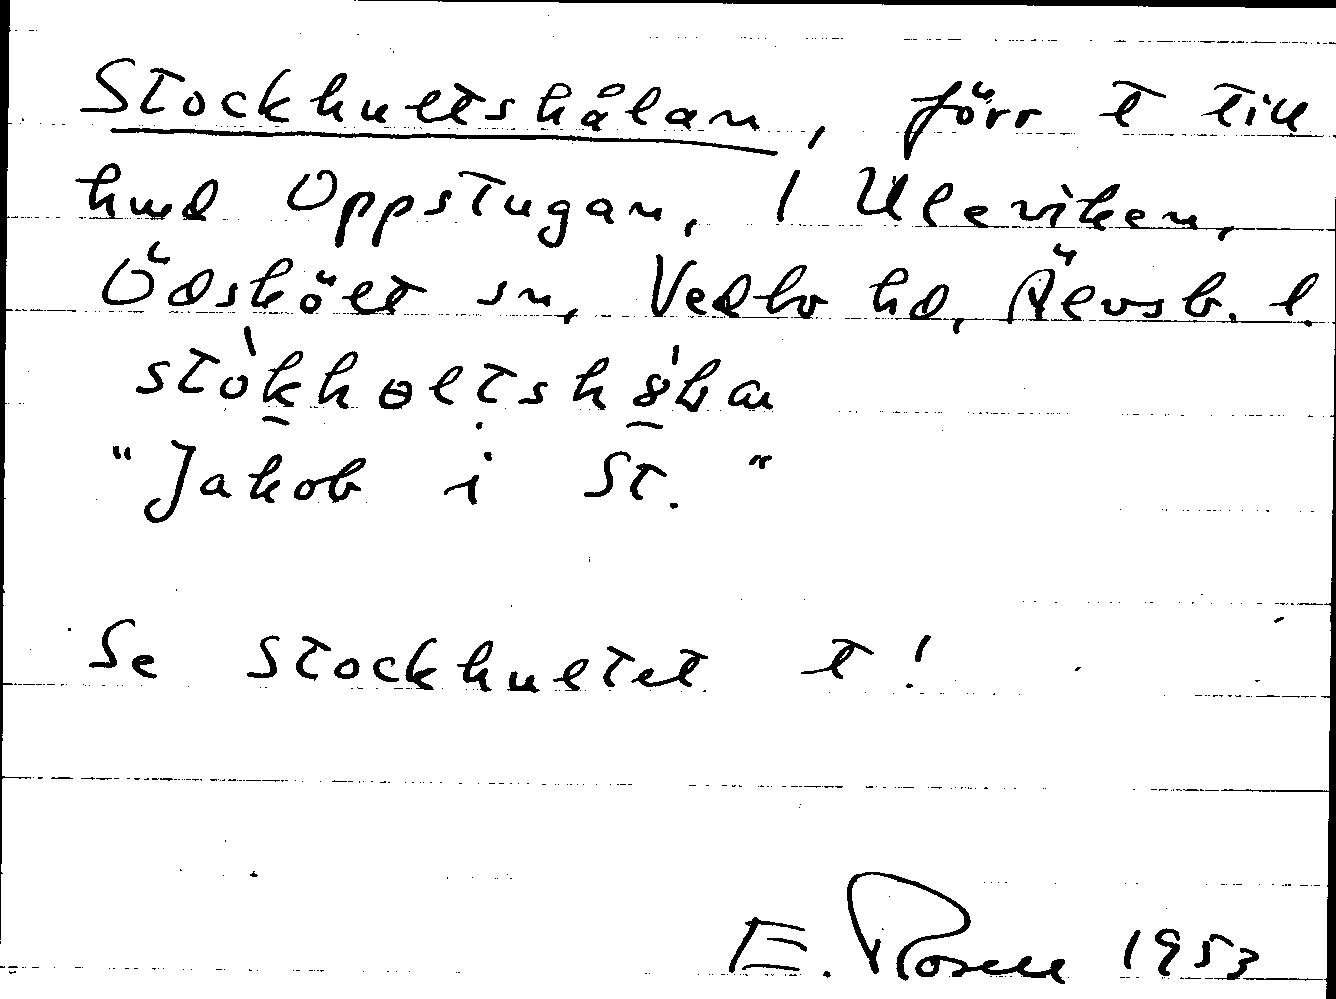 Stockhultshålan, förr t till
hmd Oppstugan, 1 Uleviken,
Ödskölt sn, Vedbo hd, Älvsb. l.
"Jakob i St."
Se Stockhultet t!
E. Rosell 1953